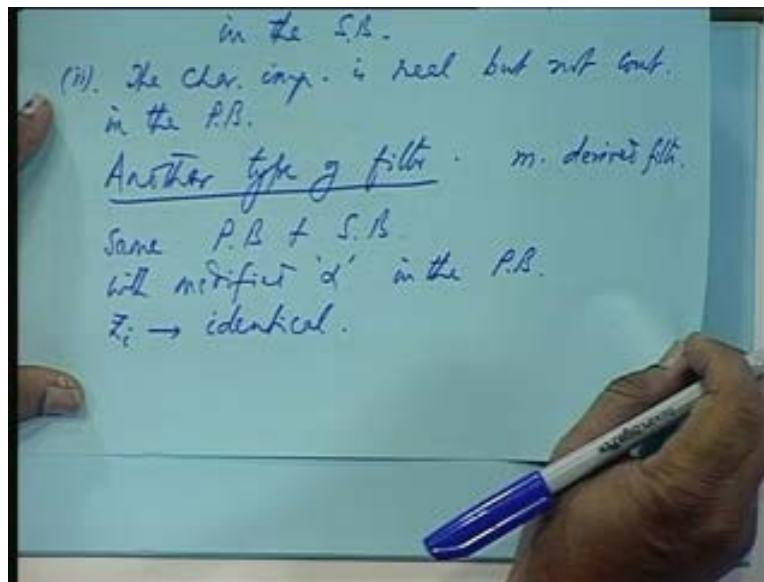 in the S.B.
(ii). The char. imp. is real but not const.
in the P.B.
Another type of filter. m. derived filt.
Same P.B + S.B
with modified 'α' in the P.B.
Zi → identical.